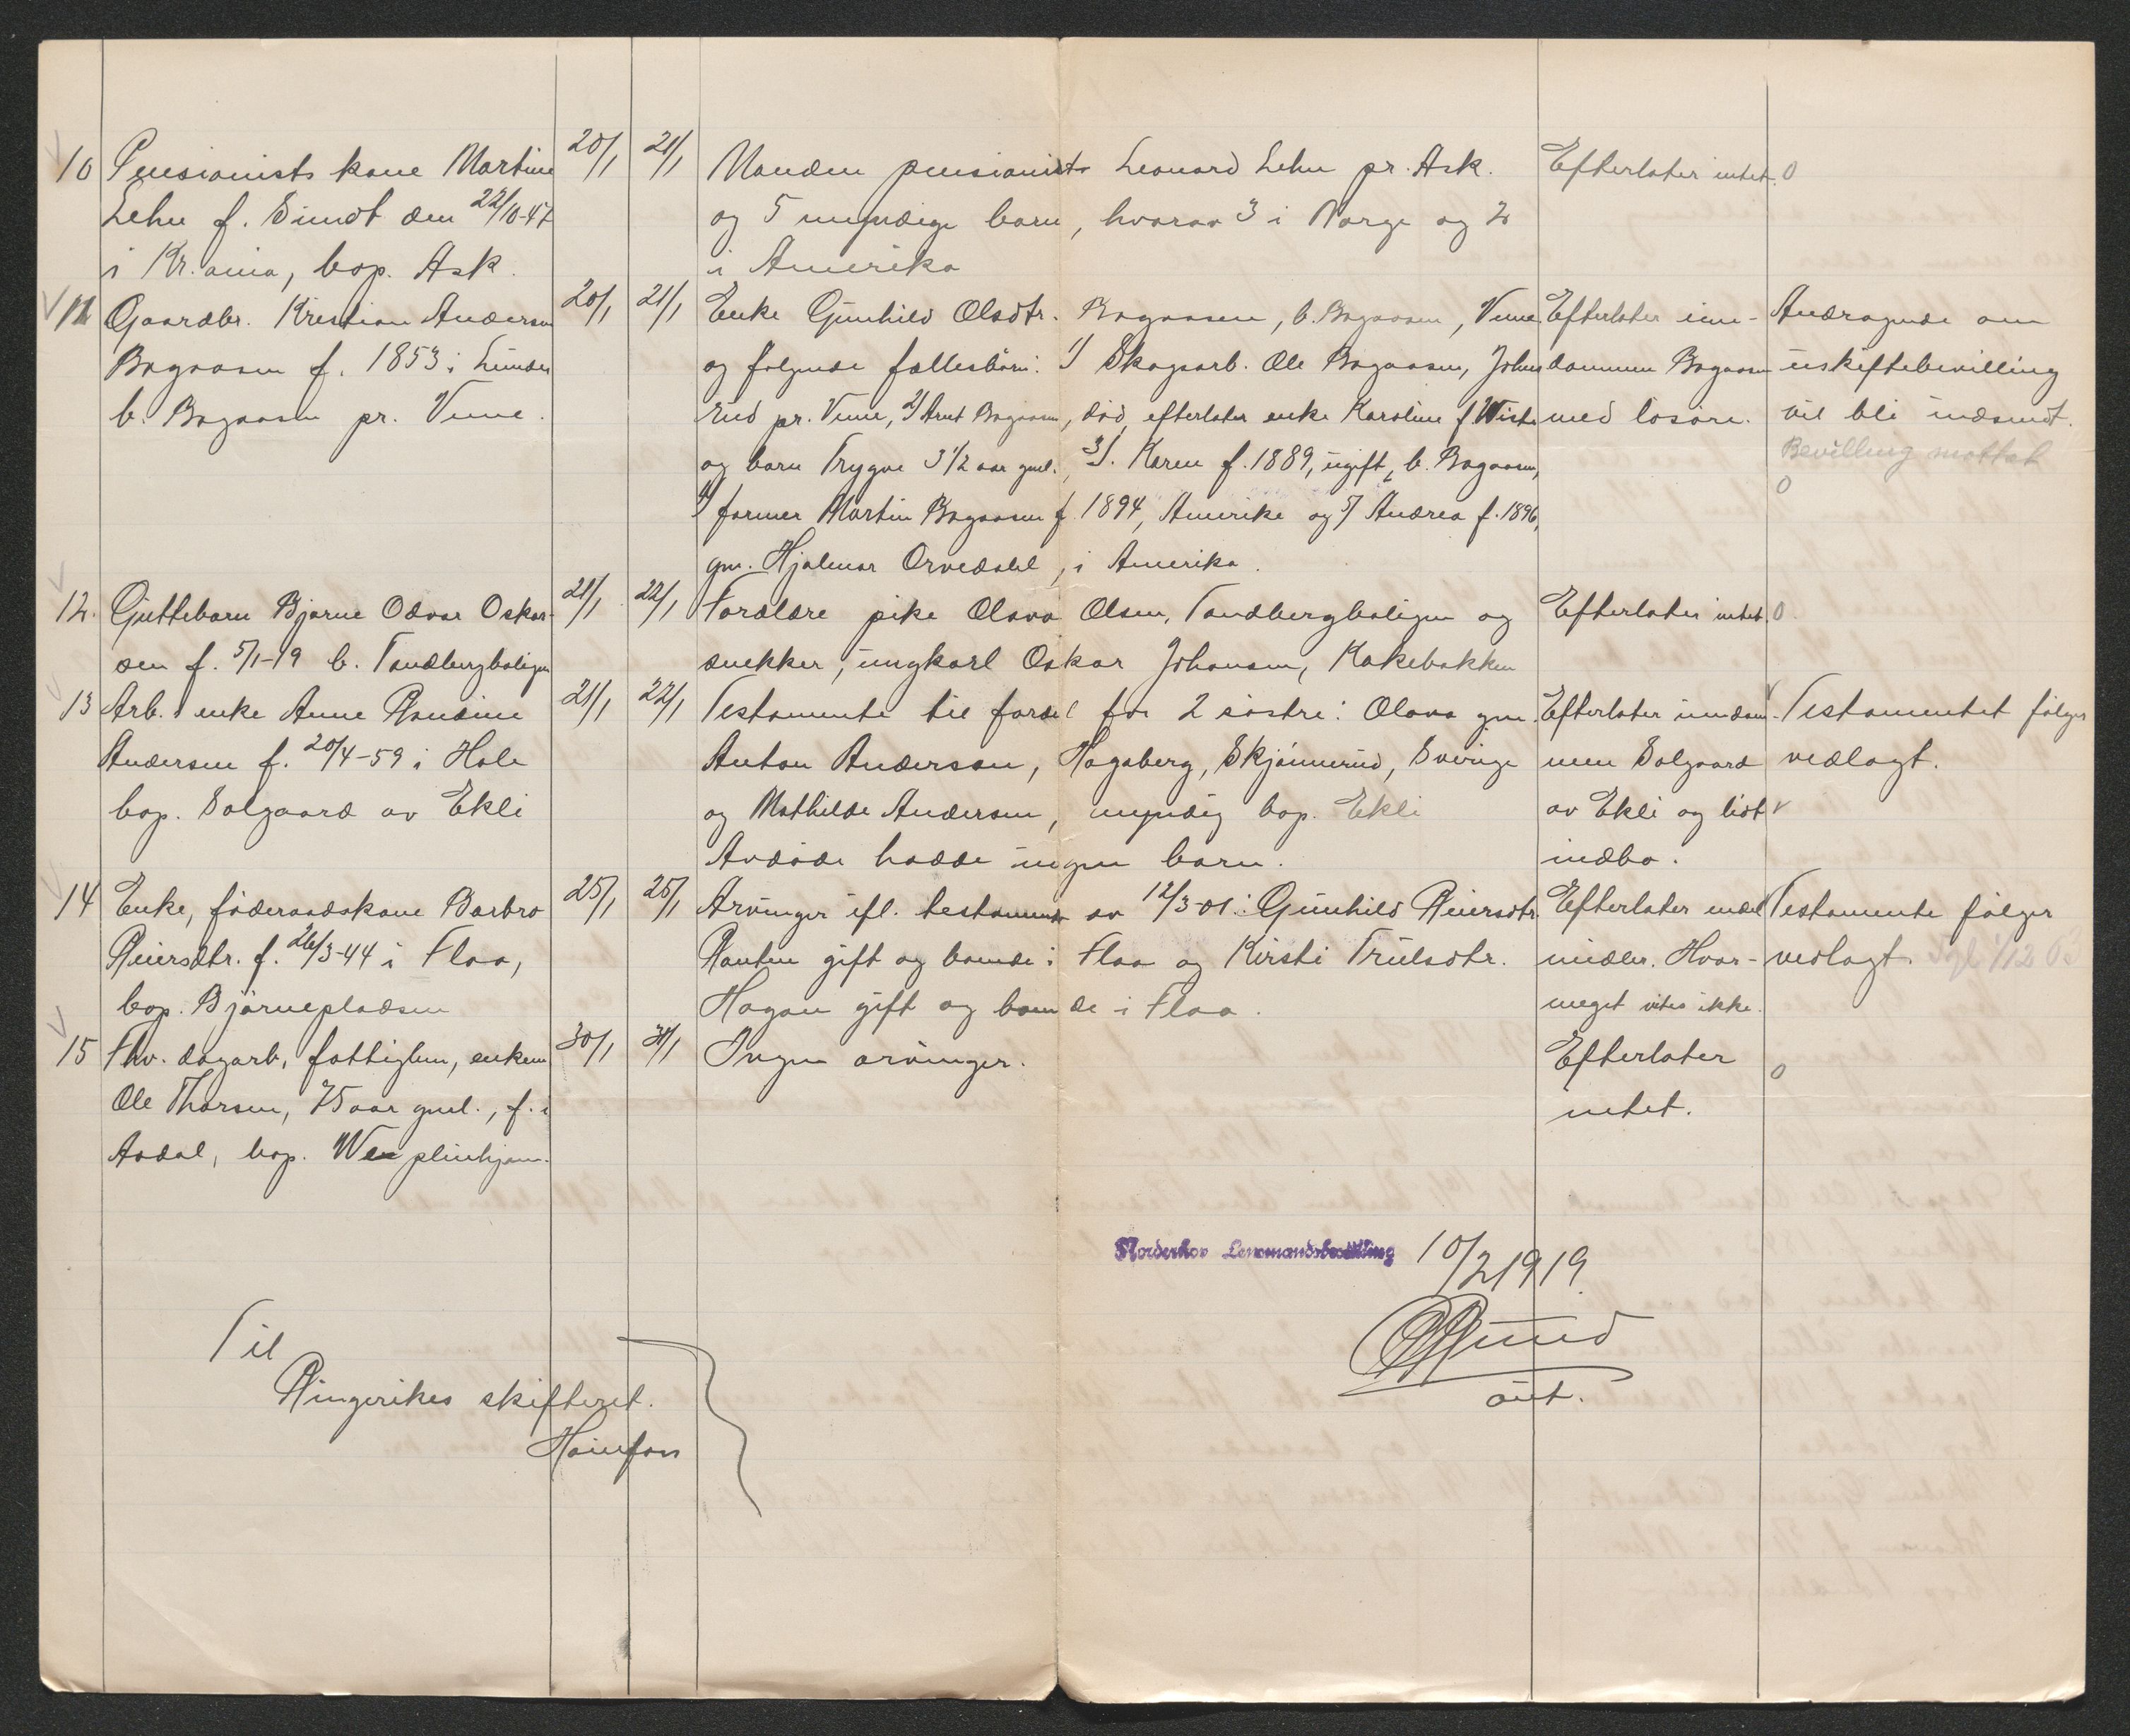 10 Pensionists kone Martine 20/1 21/1 Manden pensionist Leonard Lehn pr. Ask. Efterlater intet. 0
Lehn f. Simdt den 22/10-47 og 5 myndige barn, hvorav 3 i Norge og 2
i Kr.ania, bop. Ask. i Amerika
11 Gaardbr. Kristian Andersen 20/1 21/1 Enke Gunhild Olsdtr. Bagaasen, b. Bagaasen, Veme Efterlater eien- Andragende om
Bagaasen f. 1853 i Lunder og følgende fællesbarn: 1) Skogsarb. Ole Bagaasen, Johns dommen Bagaasen uskiftebevilling
b. Bagaasen pr. Veme. rud pr. Veme, 2) Arnt Bagaasen, død, efterlater enke Karoline f. Wiste med løsøre. vil bli indsendt.
og barn Trygve 3 1/2 aar gml., 3). Karen f. 1889, ugift, b. Bagaasen, Bevilling mottat
4) farmer Martin Bagaasen f. 1894, Amerika og 5) Andrea f. 1896, 0
gm. Hjalmar Orvedahl, i Amerika.
12. Guttebarn Bjarne Odvar Oskar- 21/1 22/1 Forældre pike Olava Olsen, Tandbergboligen og Efterlater intet. 0
sen f. 5/1-19 b. Tandbergboligen snekker, ungkarl Oskar Johansen, Kakebakken
13 Arb. enke Anne Randine 21/1 22/1 Testamente til fordel for 2 søstre: Olava gm. Efterlater eiendom- Testamentet følger
Andersen f. 20/4-59 i Hole Anton Anderson, Hagaberg, Skjønnerud, Sverige men Solgaard vedlagt.
bop. Solgaard av Ekli og Mathilde Andersen, myndig bop. Ekli av Ekli og lidt
Avdøde hadde ingen barn. indbo.
14 Enke, føderaadskone Barbro 25/1 25/1 Arvinger ifl. testamente av 12/3-01: Gunhild Reiersdtr. Efterlater endel Testamente følger
Reiersdtr. f. 26/3-44 i Flaa, Ranten gift og boende i Flaa og Kirsti Trulsdtr. midler. Hvor- vedlagt.
bop. Bjørnepladsen Hagan gift og boende i Flaa. meget vites ikke.
15 Fhv. dagarb, fattiglem, enkem. 30/1 31/1 Ingen arvinger. Efterlater 0
Ole Thorsen, 75 aar gml., f. i intet.
Aadal, bop. pleiehjem.
Norderhov Lensmandsbestilling 10/2 1919.
Til
Ringerikes skifteret. aut.
Hønefoss